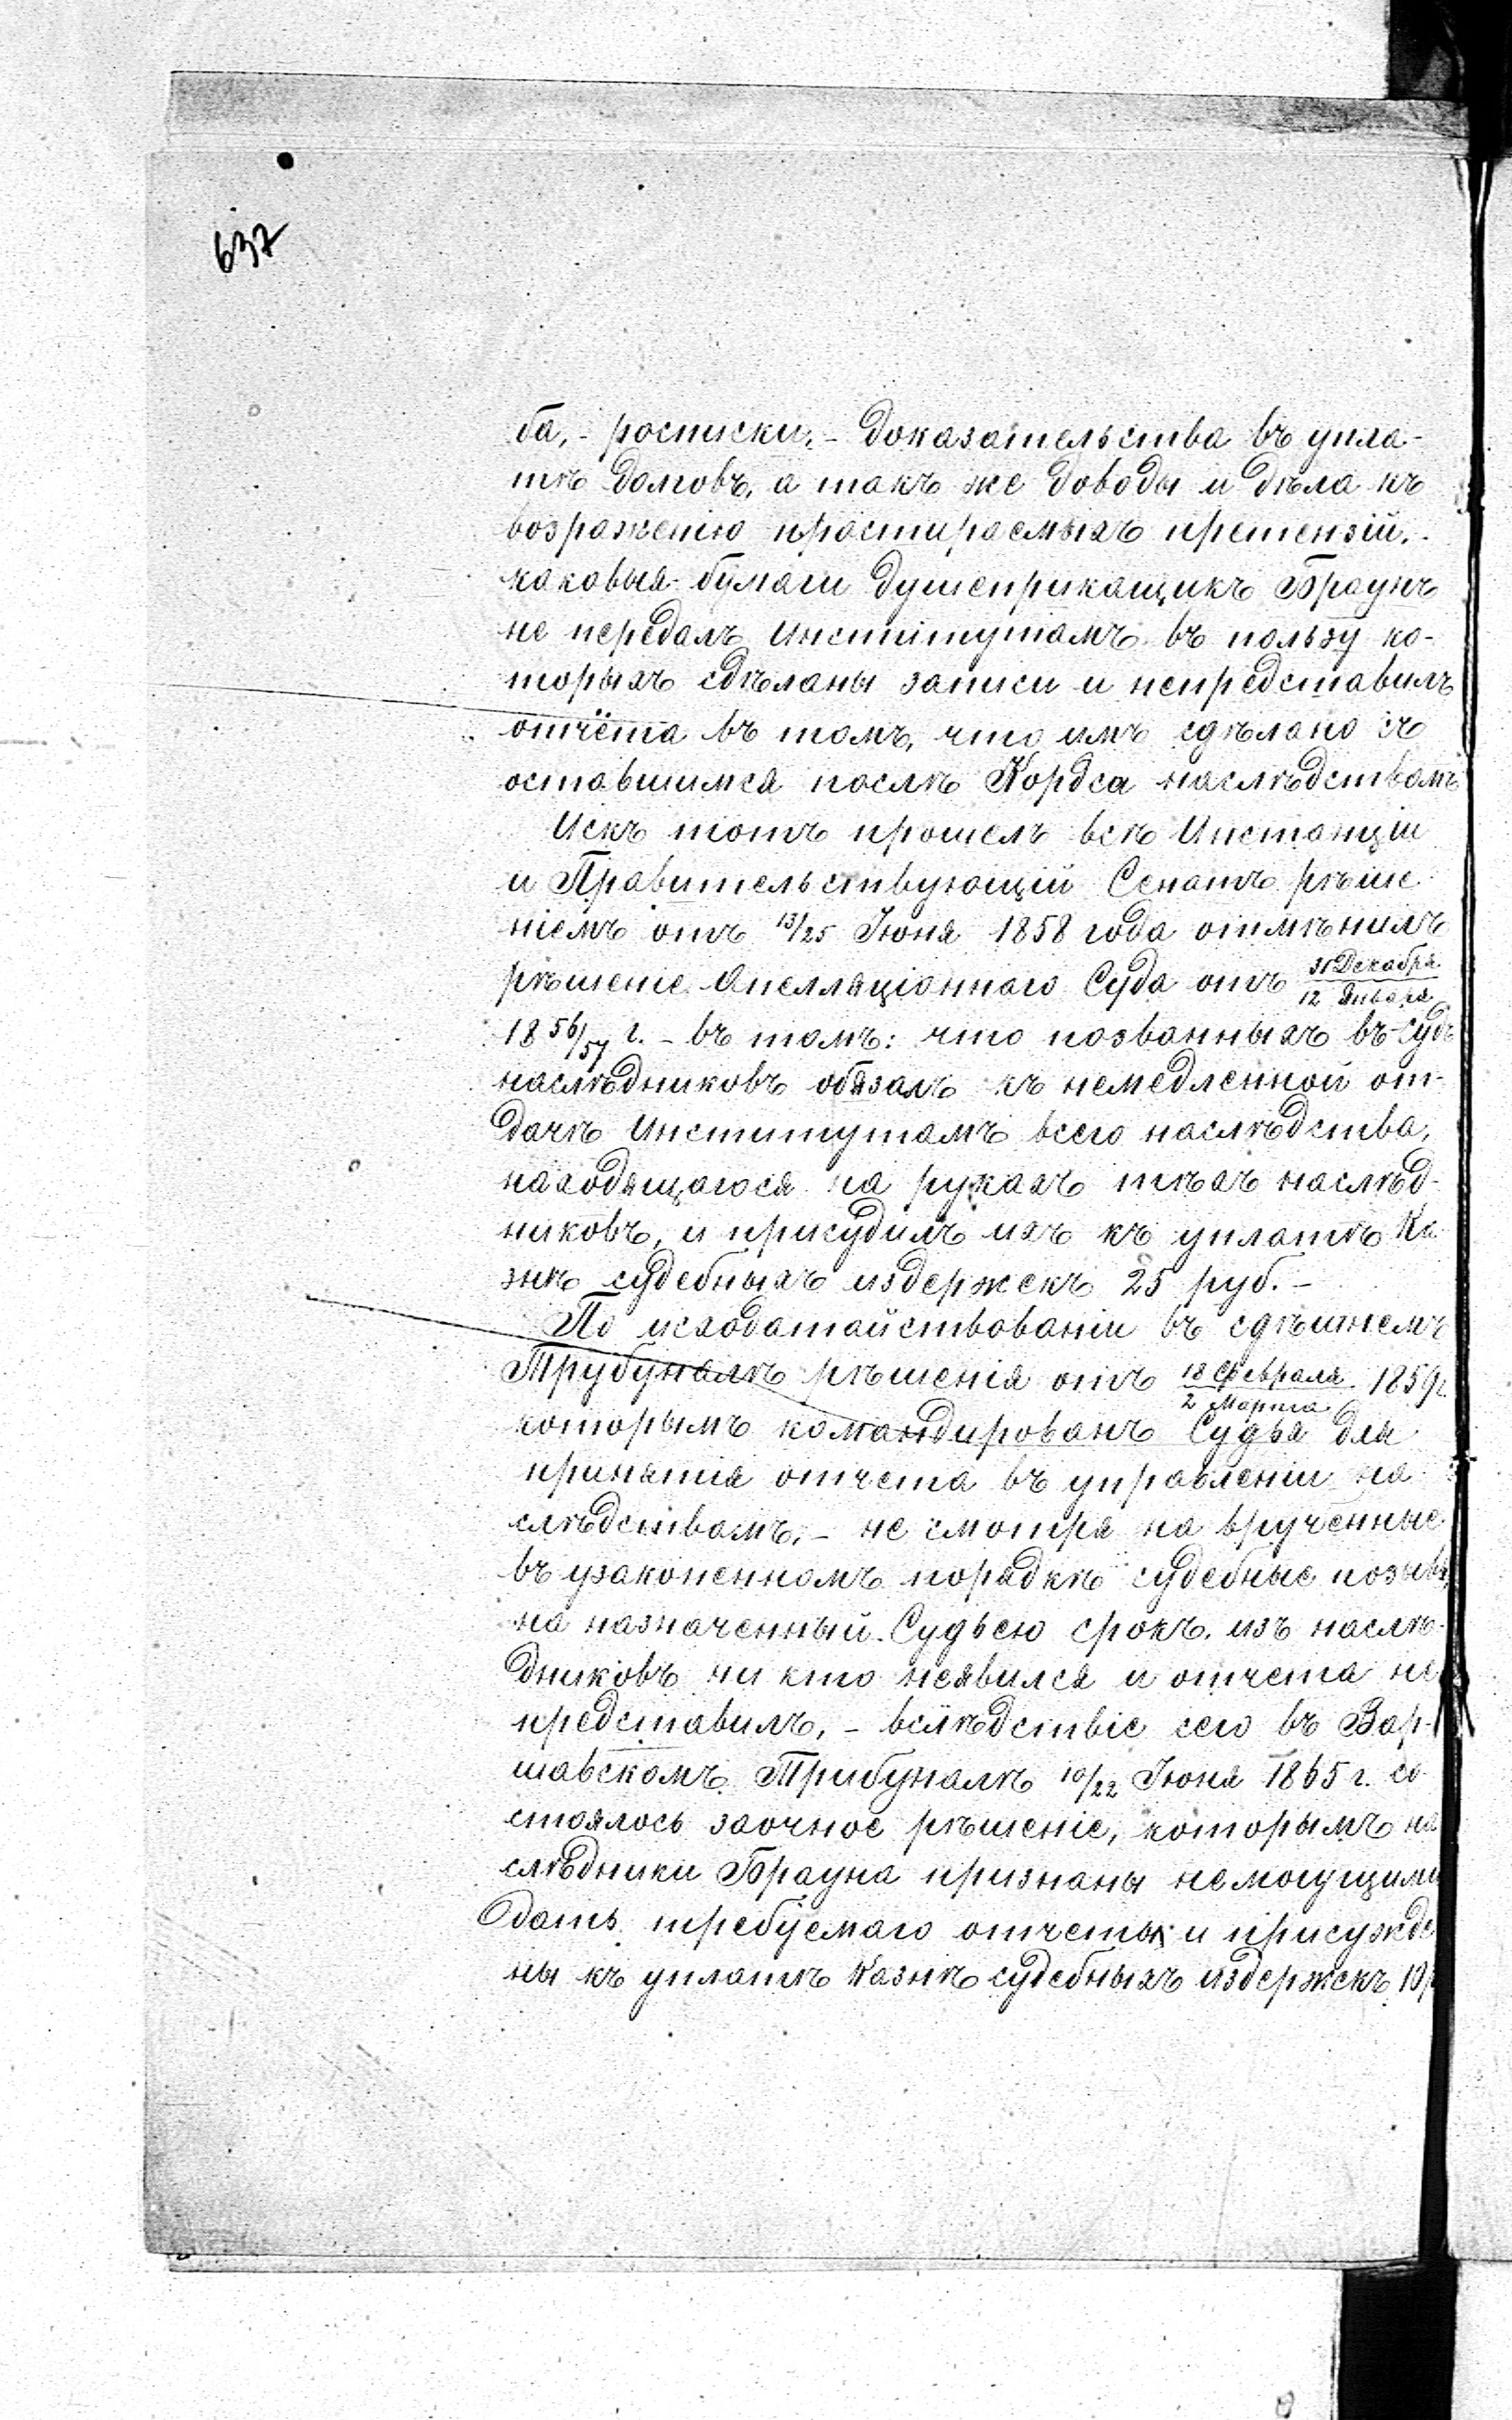 637
ба, - росписки, - доказательства въ упла-
тѣ долговъ, а такъ же доводы и дѣла къ
возраженію простираемыхъ претензій. -
каковыя бумаги душеприкащикъ Браунъ
не передалъ Институтамъ въ пользу ко-
торыхъ сдѣланы записи и непредставилъ
отчёта въ томъ, что имъ сдѣлано съ
оставшимся послѣ Кордса наслѣдствомъ
Искъ тотъ прошелъ всѣ Инстанціи
и Правительствующій Сенатъ рѣше-
ніемъ отъ 13/25 Іюня 1858 года отмѣнилъ
рѣшеніе Апелляціоннаго Суда отъ 31 Декабря / 12 Января
18 56/57 г. - въ томъ: что позванныхъ въ судъ
наслѣдниковъ обязалъ къ немедленной от-
дачѣ Институтамъ всего наслѣдства,
находящагося на рукахъ тѣхъ наслѣд-
никовъ, и присудилъ ихъ къ уплатѣ Ка-
знѣ судебныхъ издержекъ 25 руб. -
По исходатайствованіи въ сдѣшнемъ
Трубуналѣ рѣшенія отъ 18 Февраля / 2 Марта 1859 г.
которымъ командированъ Судья для
принятія отчета въ управленіи на-
слѣдствомъ, - не смотря на врученные
въ узаконенномъ порядкѣ судебные позывы,
на назначенный Судьею срокъ, изъ наслѣ-
дниковъ ни кто неявился и отчета не
представилъ, - вслѣдствіе сего въ Вар-
шавскомъ Трибуналѣ 10/22 Іюня 1865 г. со-
стоялось заочное рѣшеніе, которымъ на
слѣдники Брауна признаны немогущими
дать требуемаго отчета и присужде
ны къ уплатѣ Казнѣ судебныхъ издержекъ 19 р